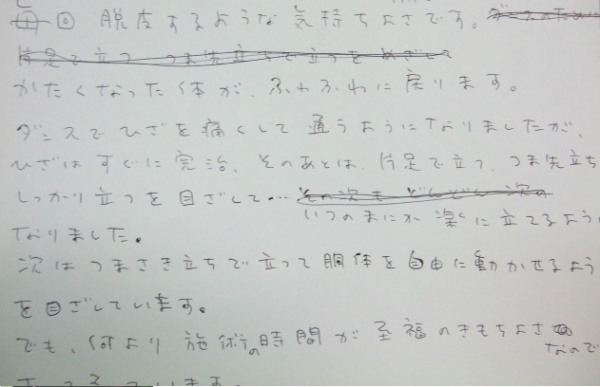 脱皮するような気持ちよさです。
片足で立つ、つま先立ちで立つを めざして
かたくなった体が、ふわふわに戻ります。
ダンスでひざを痛くして通うようになりましたが、
ひざはすぐに完治、そのあとは、片足で立つ、つま先立ち
しっかり立つを目ざして…その次も どんどん次の
いつのまにか楽に立てるよう
なりました。
次はつまさき立ちで立って胴体を自由に動かせるよう
を目ざしています。
でも、何より施術の時間が至福のきもちよさ
なので